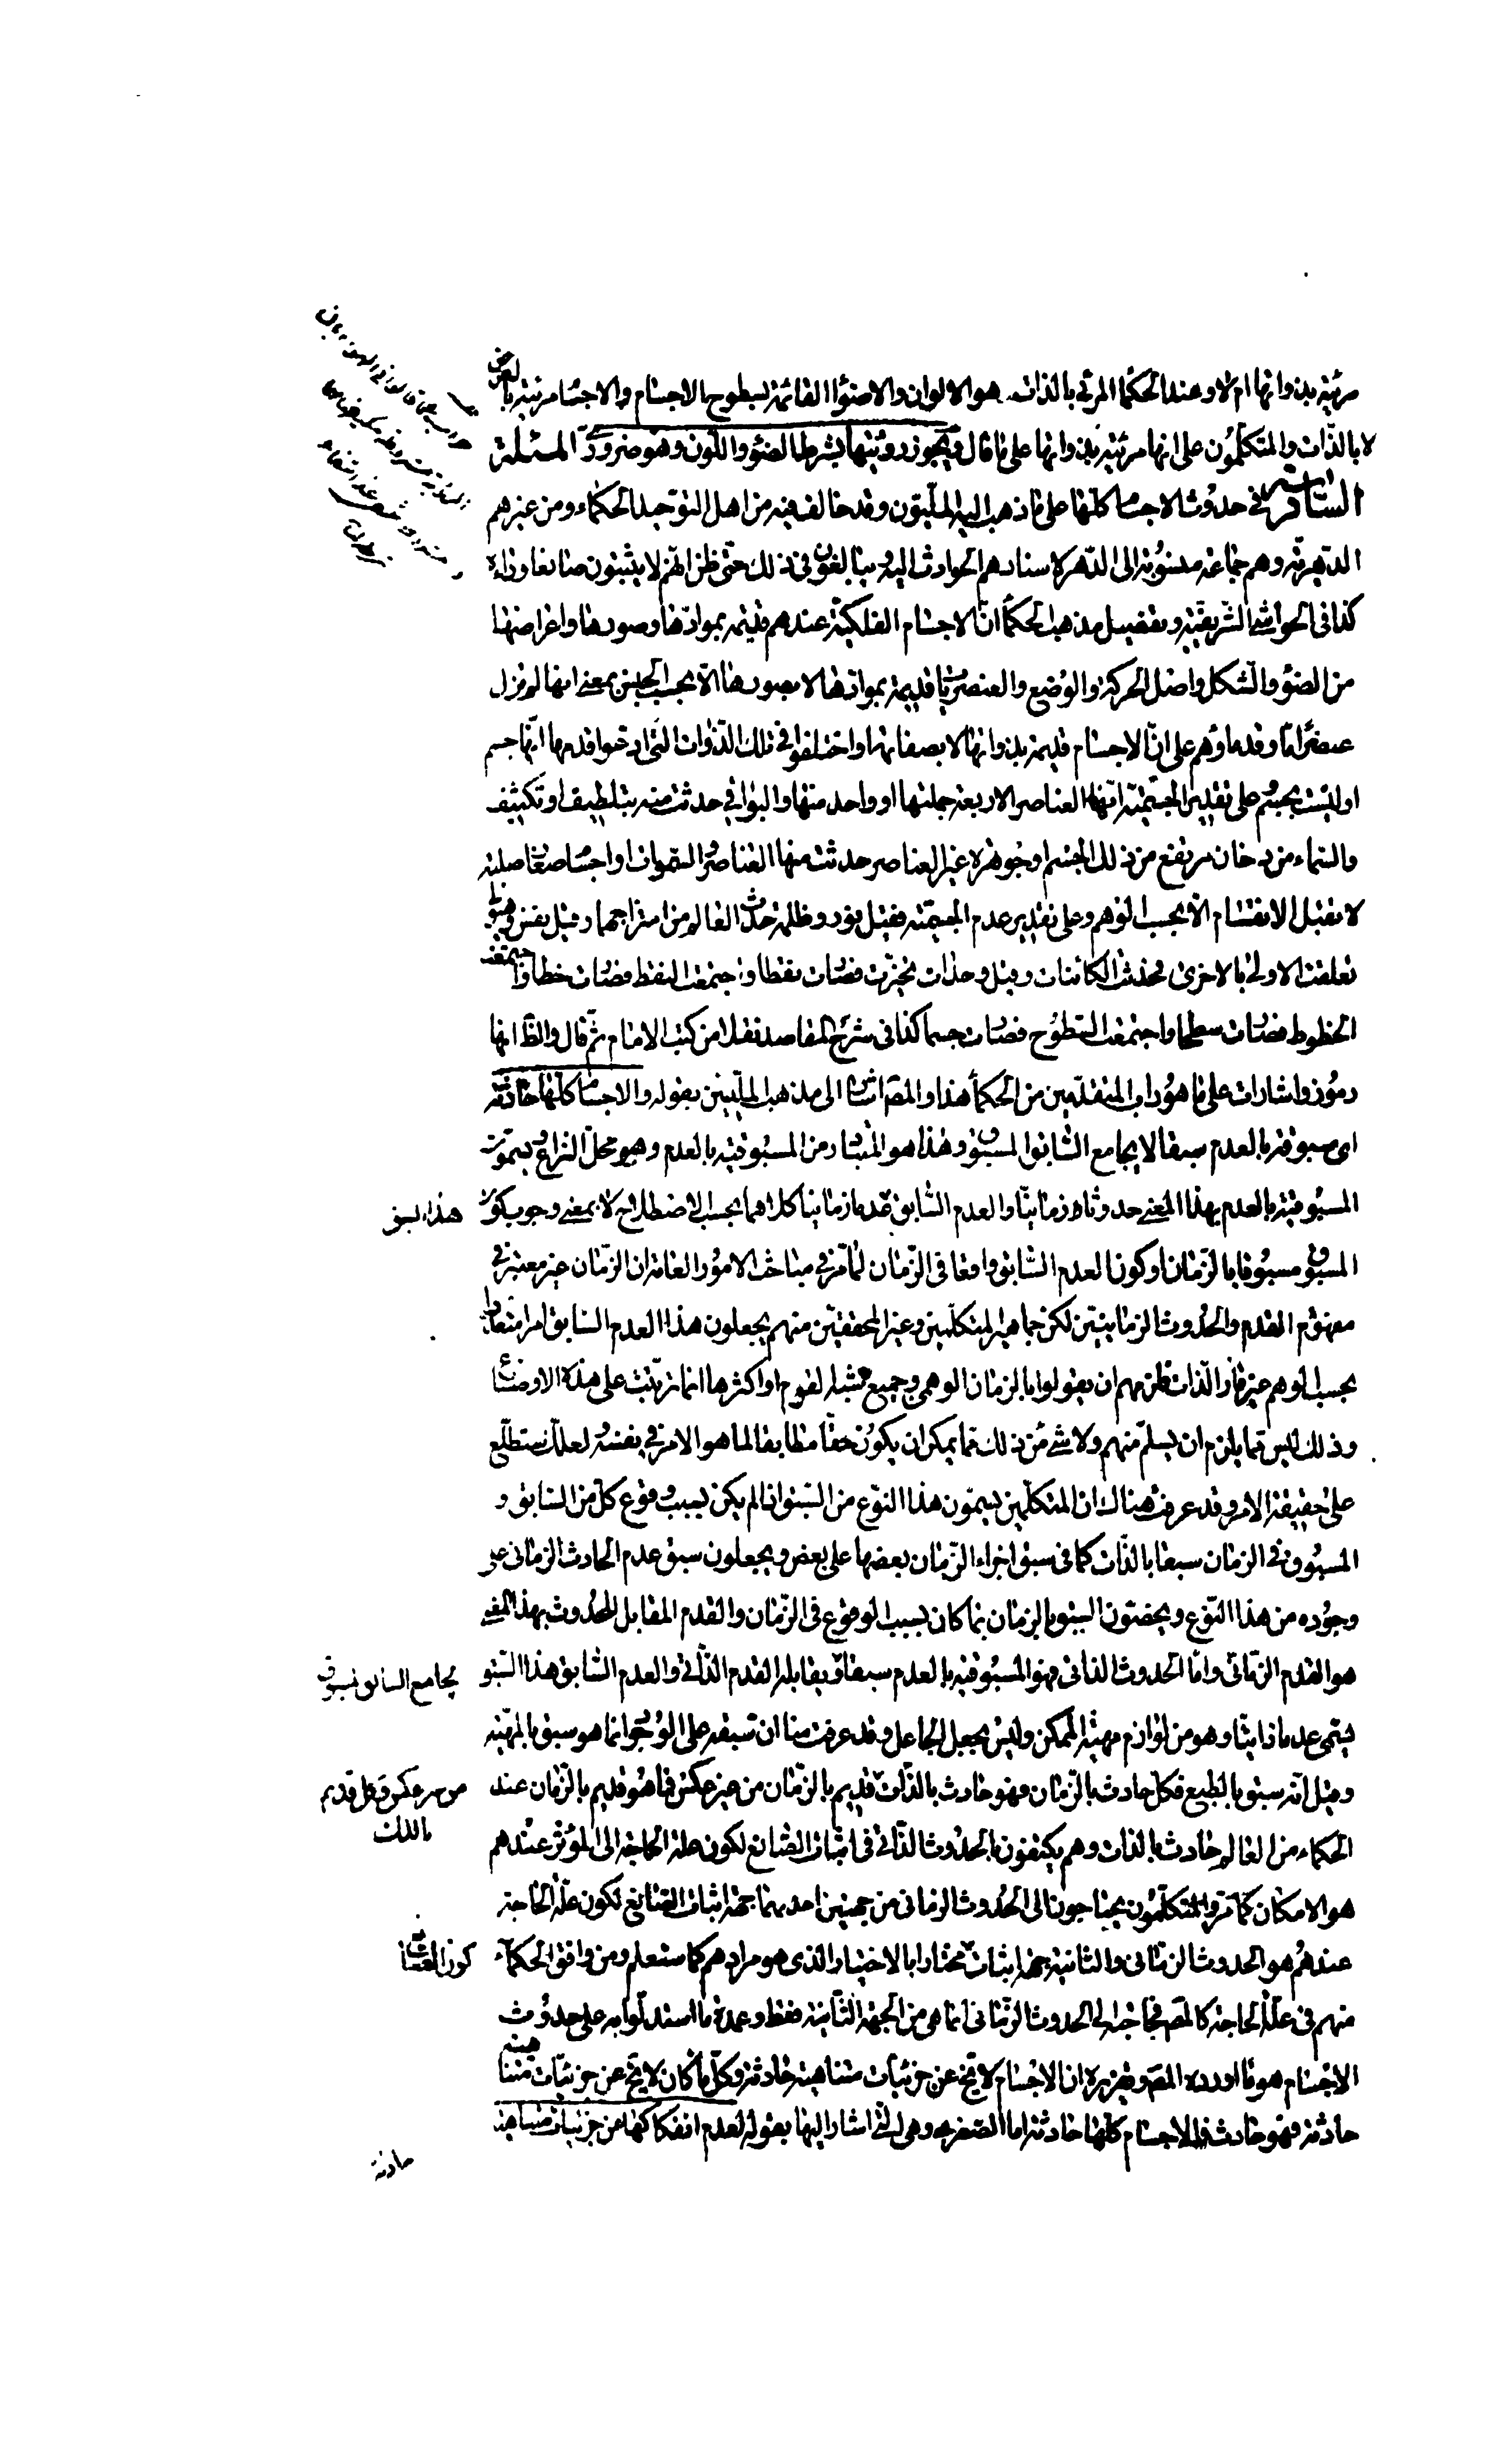 مرئية بذواتها ام لا وعند الحكما المرئى بالذات هو الالوان والاضوا القائمة بسطوح الاجسام والاجسام مرئية بالعرض
لا بالذات والمتكلمون على انها مرئية بذواتها على ما قال ويجوز رؤيتها بشرط الضوء واللون وهو ضرورى المسئلة
السادسة فى حدوث الاجسام كلها على ما ذهب اليه المليّون وقد خالف فيه من اهل التوحيد الحكماء ومن غيرهم
الدهرية وهم جماعة منسوبة الى الدهر لاسنادهم الحوادث اليه ويبالغون فى ذلك حتى ظن انهم لا يثبتون صانعا وراءه
كذا فى الحواشى الشريفية وتفصيل مذهب الحكما انّ الاجسام الفلكية عندهم قديمة بموادها وصورها واعراضها
من الضوء والشكل واصل الحركة والوضع والعنصريات قديمة بموادها لا بصورها الا بحسب الجنس بمعنى انها لم تزل
عنصرا ما وقدماؤهم على انّ الاجسام قديمة بذواتها لا بصفاتها واختلفوا فى تلك الذوات التى ادعوا قدمها انها جسم
او ليست بجسم على تقدير الجسمية انها العناصر الاربعة جملتها او واحد منها والبواقى حدثت منه بتلطيف او تكثيف
والسماء من دخان مرتفع من ذلك الجسم او جوهرة غير العناصر حدثت منها العناصر والسموات او اجسام صغار صلبة
لا تقبل الانقسام الا بحسب الوهم وعلى تقدير عدم الجسمية فقيل نور وظلمة حدث العالم من امتزاجهما وقيل نفس وهيولى
تعلقت الاولى بالاخرى فحدثت الكائنات وقيل وحدات تحيزت فصارت نقطا واجتمعت النقط فصارت خطا واجتمعت
الخطوط فصارت سطحا واجتمعت السطوح فصارت جسما كذا فى شرح المقاصد نقلا من كتب الامام ثم قال والظ انها
رموز واشارات على ما هو داب المتقدمين من الحكما هذا والمص اشار الى مذهب المليين بقوله والاجسام كلها حادثة
اى مسبوقة بالعدم سبقا لا يجامع السابق المسبوق وهذا هو المتبادر من المسبوقية بالعدم وهو محل النزاع ويسمون
المسبوقية بالعدم بهذا المعنى حدوثا زمانيا والعدم السابق عدما زمانيا كلاهما بحسب الاصطلاح لا بمعنى وجوب كون هذا السبق
المسبوق مسبوقا بالزمان او كون العدم السابق واقعا فى الزمان لما مر فى مباحث الامور العامة ان الزمان غير معتبر فى
مفهوم القدم والحدوث الزمانيين لكن جماهير المتكلمين وغير المحققين منهم يجعلون هذا العدم السابق امرا متقدرا
بحسب الوهم غير قار الذات فلزمهم ان يقولوا بالزمان الوهمى وجميع شبه القوم او اكثرها انما ترتبت على هذه الاوضاع
وذلك ليس مما يلزم ان يسلم منهم ولا شئ من ذلك مما يمكن ان يكون حقا مطابقا لما هو الامر فى نفسه ولعلك ستطلع
على حقيقة الامر وقد عرفت هناك ان المتكلمين يسمون هذا النوع من السبق اذا لم يكن بسبب وقوع كل من السابق و
المسبوق فى الزمان سبقا بالذات كما فى سبق اجزاء الزمان بعضها على بعض ويجعلون سبق عدم الحادث الزمانى على
وجوده من هذا النوع ويخصون السبق بالزمان بما كان بسبب الوقوع فى الزمان والقدم المقابل للحدوث بهذا المعنى
هو القدم الزمانى واما الحدوث الذاتى فهو المسبوقية بالعدم سبقا يجامع السابق المسبوق ويقابله القدم الذاتى والعدم السابق هذا السبق
يسمى عدما ذاتيا وهو من لوازم مهية الممكن وليس بجعل الجاعل وقد عرفت منا ان سبقه على الوجود انما هو سبق بالمهية
وقيل انه سبق بالطبع فكل حادث بالزمان فهو حادث بالذات من غير عكس وكل قديم بالذات قديم بالزمان من غير عكس فما هو قديم بالزمان عند
الحكماء من العالم حادث بالذات وهم يكتفون بالحدوث الذاتى فى اثبات الصانع لكون علة الحاجة الى المؤثر عندهم
هو الامكان كما مر والمتكلمون يحتاجون الى الحدوث الزمانى من جهتين احديهما جهة اثبات الصانع لكون علة الحاجة
عندهم هو الحدوث الزمانى والثانية جهة اثبات كون الصانع مختارا بالاختيار الذى هو مرادهم كما ستعلم ومن وافق الحكماء
منهم فى علة الحاجة كالمص فحاجته الى الحدوث الزمانى انما هى من الجهة الثانية فقط وعمدة ما استدلوا به على حدوث
الاجسام هو ما اورده المص وتقريره ان الاجسام لا تخ عن جزئيات متناهية حادثة وكل ما كان لا يخ عن جزئيات متناهية
حادثة فهو حادث فالاجسام كلها حادثة اما الصغرى وهى التى اشار اليها بقوله لعدم انفكاكها عن جزئيات متناهية
حادثة